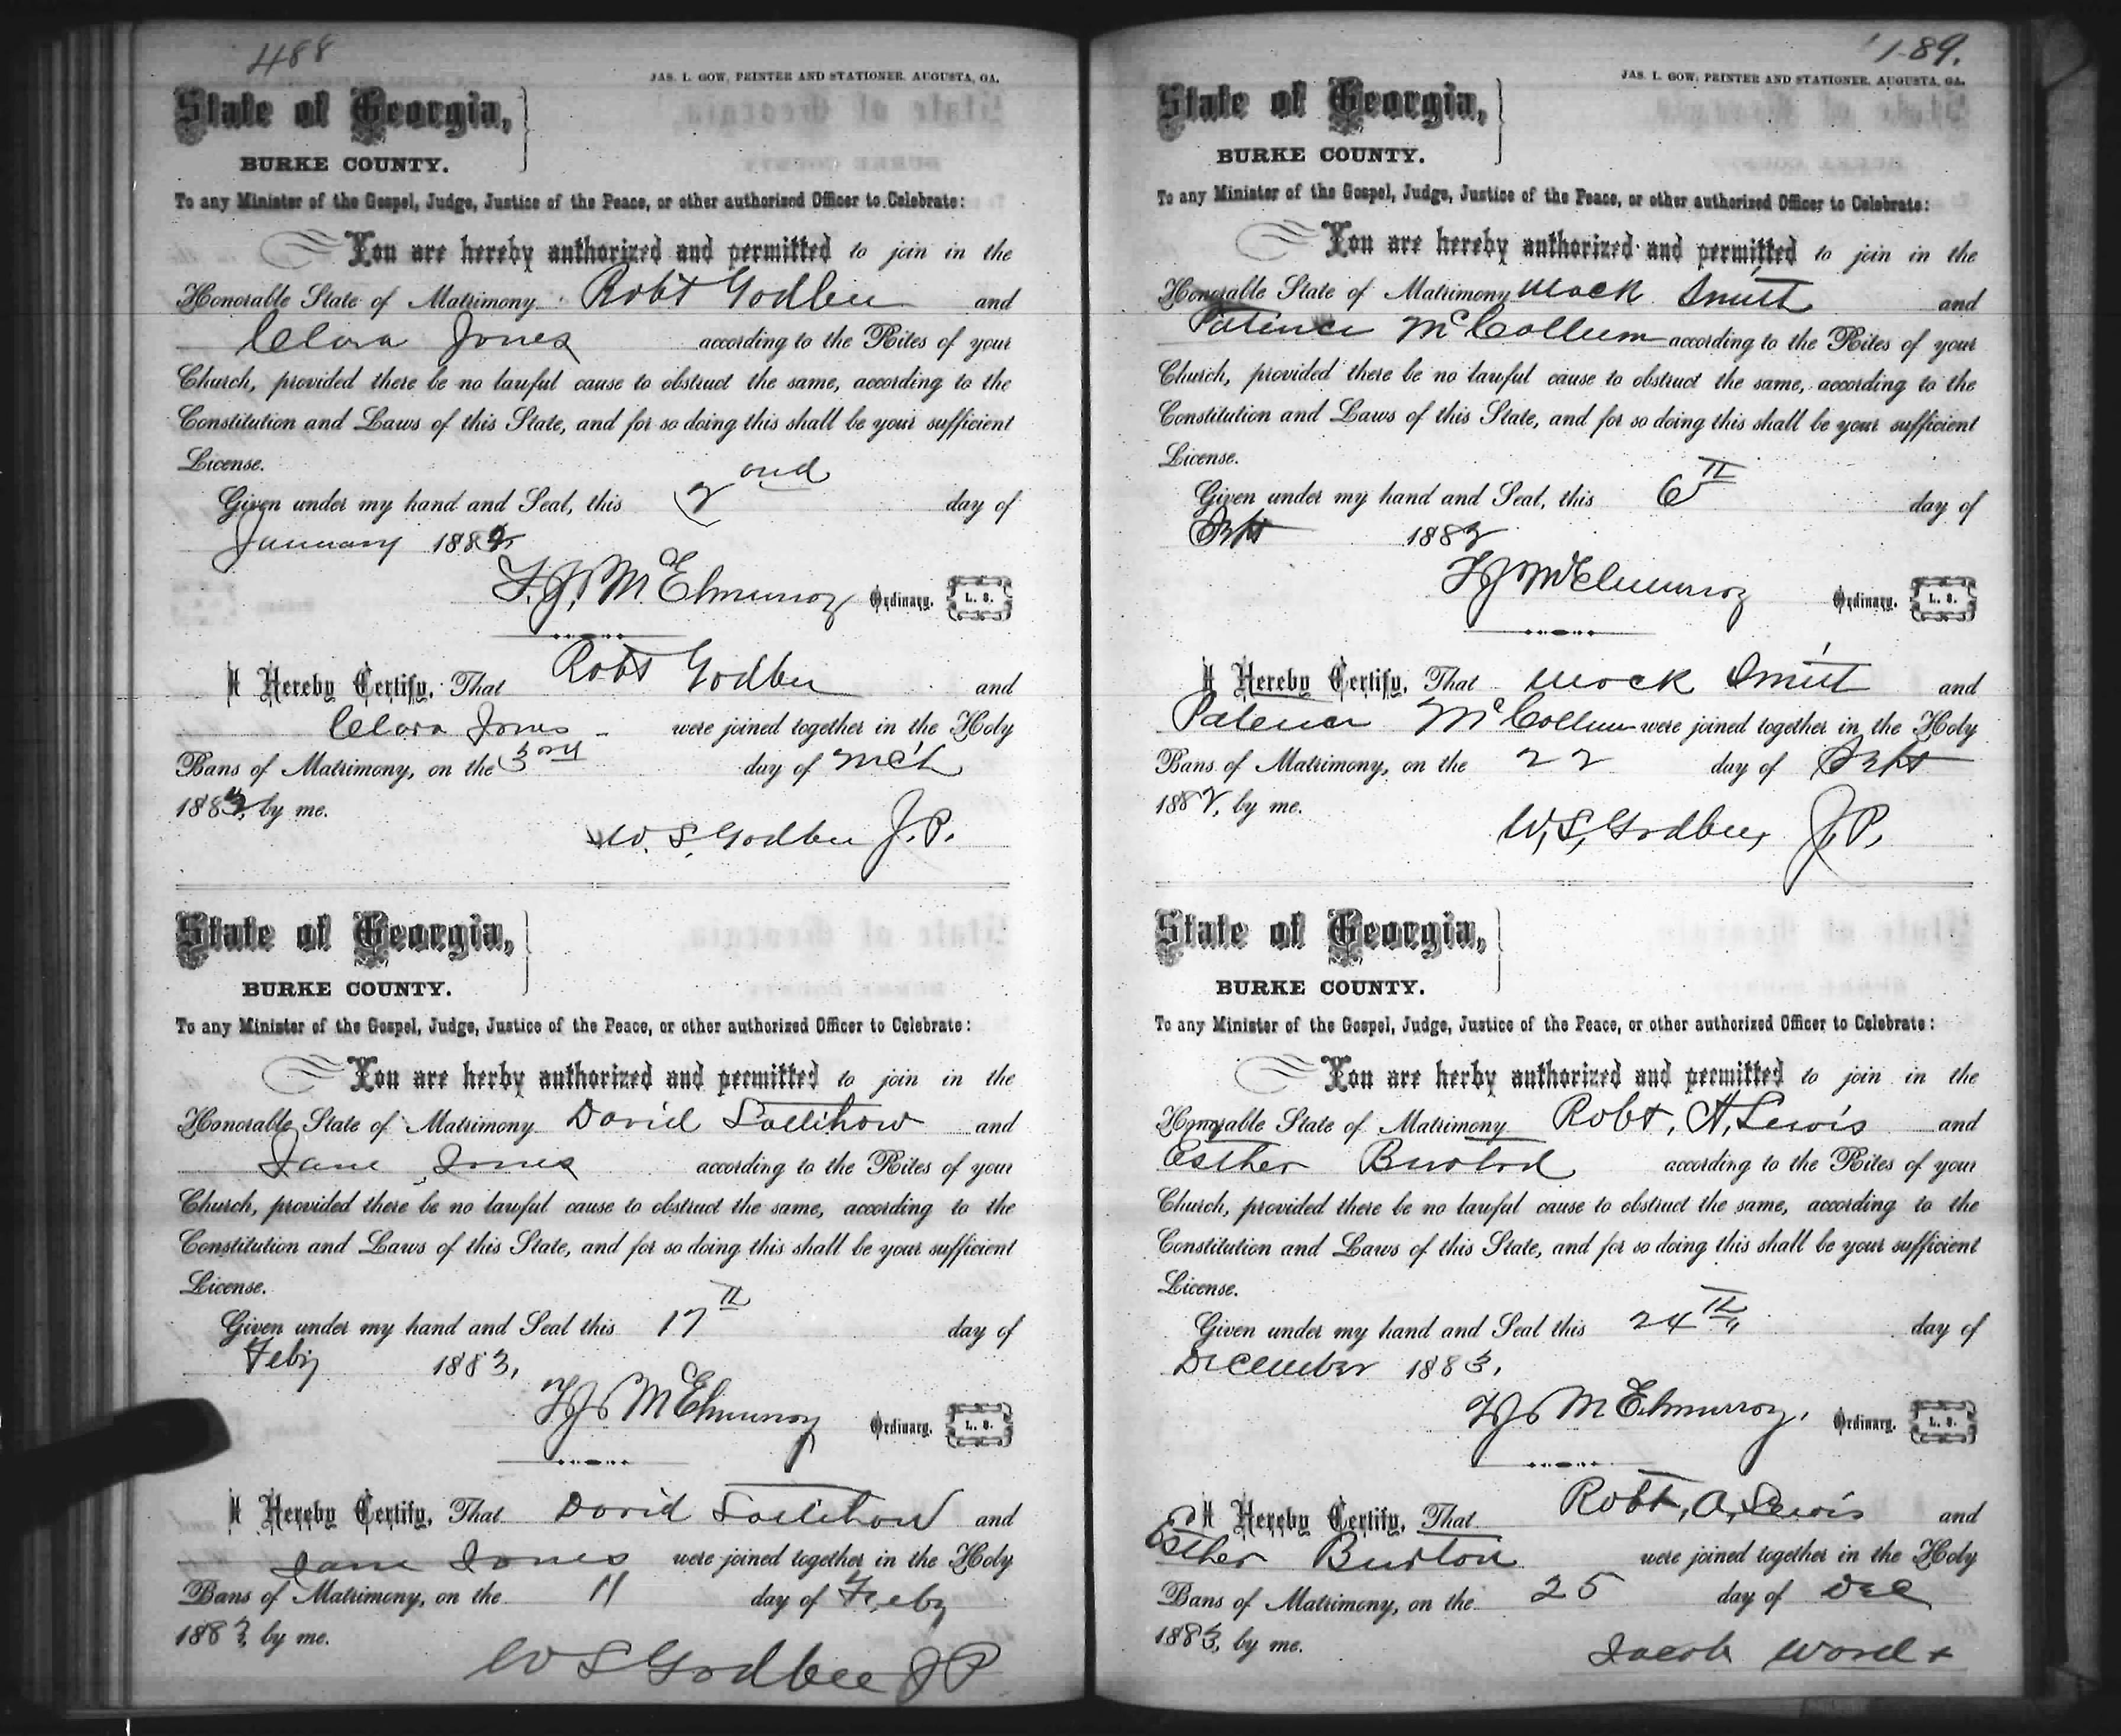 488
JAS. L. GOW, PRINTER AND STATIONER, AUGUSTA, GA.
State of Georgia,
BURKE COUNTY.
To any Minister of the Gospel, Judge, Justice of the Peace, or other authorized Officer to Celebrate:
You are hereby authorized and permitted to join in the
Honorable State of Matrimony Robt Godbee and
Clora Jones according to the Rites of your
Church, provided there be no lawful cause to obstruct the same, according to the
Constitution and Laws of this State, and for so doing this shall be your sufficient
License.
Given under my hand and Seal, this 2ond day of
January 188
F. J. McElmurray Ordinary. L. S.
I Hereby Certify, That Robt Godbee and
Clora Jones were joined together in the Holy
Bans of Matrimony, on the 3ord day of Mch
188 by me.
W. S. Godbee J. P.
State of Georgia,
BURKE COUNTY.
To any Minister of the Gospel, Judge, Justice of the Peace, or other authorized Officer to Celebrate:
You are herby authorized and permitted to join in the
Honorable State of Matrimony David and
Jane Jones according to the Rites of your
Church, provided there be no lawful cause to obstruct the same, according to the
Constitution and Laws of this State, and for so doing this shall be your sufficient
License.
Given under my hand and Seal this 17th day of
Feby 1883,
F J McElmurray Ordinary. L. S.
I Hereby Certify, That David and
Jane Jones were joined together in the Holy
Bans of Matrimony, on the 11 day of Feby
1883, by me.
W S Godbee J P
189.
JAS. L. GOW, PRINTER AND STATIONER, AUGUSTA, GA.
State of Georgia,
BURKE COUNTY.
To any Minister of the Gospel, Judge, Justice of the Peace, or other authorized Officer to Celebrate:
You are hereby authorized and permitted to join in the
Honorable State of Matrimony Mock Smith and
Patience McCollum according to the Rites of your
Church, provided there be no lawful cause to obstruct the same, according to the
Constitution and Laws of this State, and for so doing this shall be your sufficient
License.
Given under my hand and Seal, this 6th day of
Sept 1882
F J McElmurray Ordinary. L. S.
I Hereby Certify, That Mock Smith and
Patience McCollum were joined together in the Holy
Bans of Matrimony, on the 22 day of Sept
1882, by me.
W. S. Godbee, J. P.
State of Georgia,
BURKE COUNTY.
To any Minister of the Gospel, Judge, Justice of the Peace, or other authorized Officer to Celebrate:
You are herby authorized and permitted to join in the
Honorable State of Matrimony Robt. A. Lewis and
Esther according to the Rites of your
Church, provided there be no lawful cause to obstruct the same, according to the
Constitution and Laws of this State, and for so doing this shall be your sufficient
License.
Given under my hand and Seal this 24th day of
December 1883.
F J McElmurray. Ordinary. L. S.
I Hereby Certify, That Robt. A. Lewis and
Esther Burton were joined together in the Holy
Bans of Matrimony, on the 25 day of Dec
1883, by me.
Jacob Ward +